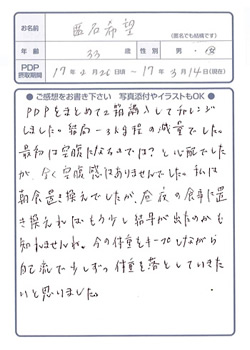 お名前 匿名希望
(匿名でも結構です)
年齢 33 歳 性別 男・女
PDP
摂取期間 17年2月26日頃〜17年3月14日(現在)
● ご感想をお書き下さい 写真添付やイラストもOK ●
PDPをまとめて2箱購入してチャレンジ
しました。結局−3kg程の減量でした。
最初は空腹になるのでは?と心配でした
が、全く空腹感はありませんでした。私は
朝食置き換えでしたが、昼夜の食事に置
き換えればもう少し結果が出たのかも
知れませんね。今の体重をキープしながら
自己流で少しずつ体重を落としていきた
いと思いました。